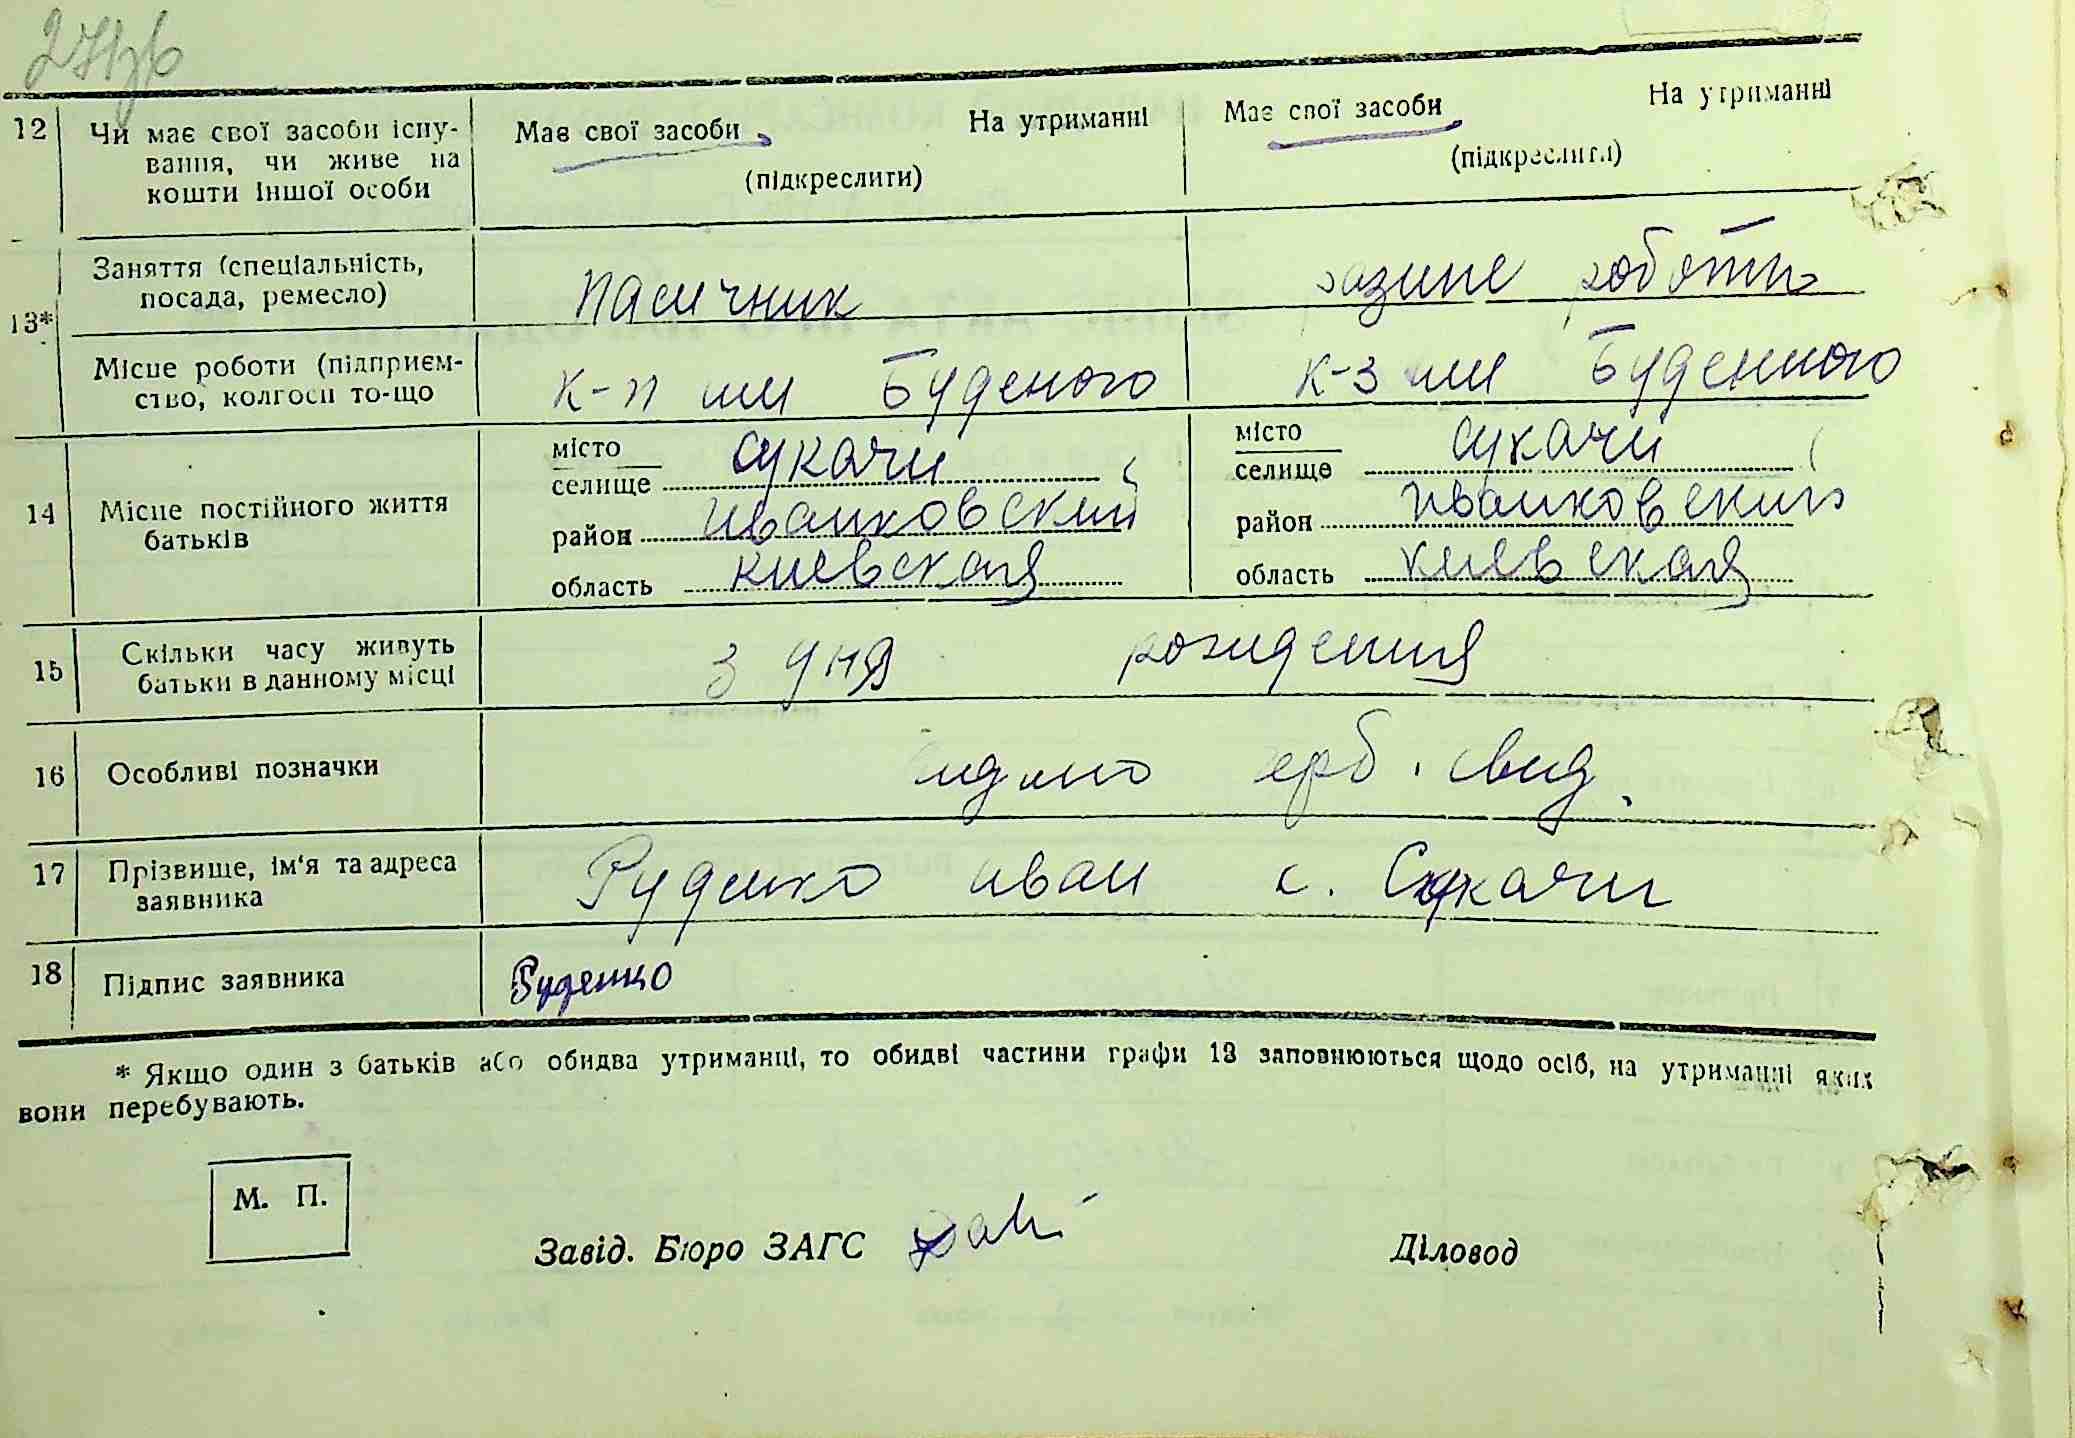 27зв
12 Чи має свої засоби існу-
вання, чи живе на
кошти іншої особи
Має свої засоби На утриманні
(підкреслити)
Має свої засоби На утриманні
(підкреслити)
13*
Заняття (спеціальність,
посада, ремесло)
пасичник
разние роботи
Місце роботи (підприєм-
ство, колгосп то-що
к-п им Буденого
к-з им Буденного
14 Місце постійного життя
батьків
місто
селище сукачи
район иванковский
область киевская
місто
селище сукачи
район иванковский
область киевская
15 Скільки часу живуть
батьки в данному місці
з дня рождения
16 Особливі позначки
герб. свид.
17 Прізвище, ім'я та адреса
заявника
Руденко иван с. Сукачи
18 Підпис заявника
Руденко
* Якщо один з батьків або обидва утриманці, то обидві частини графи 13 заповнюються щодо осіб, на утриманні яких
вони перебувають.
М. П.
Завід. Бюро ЗАГС
Діловод